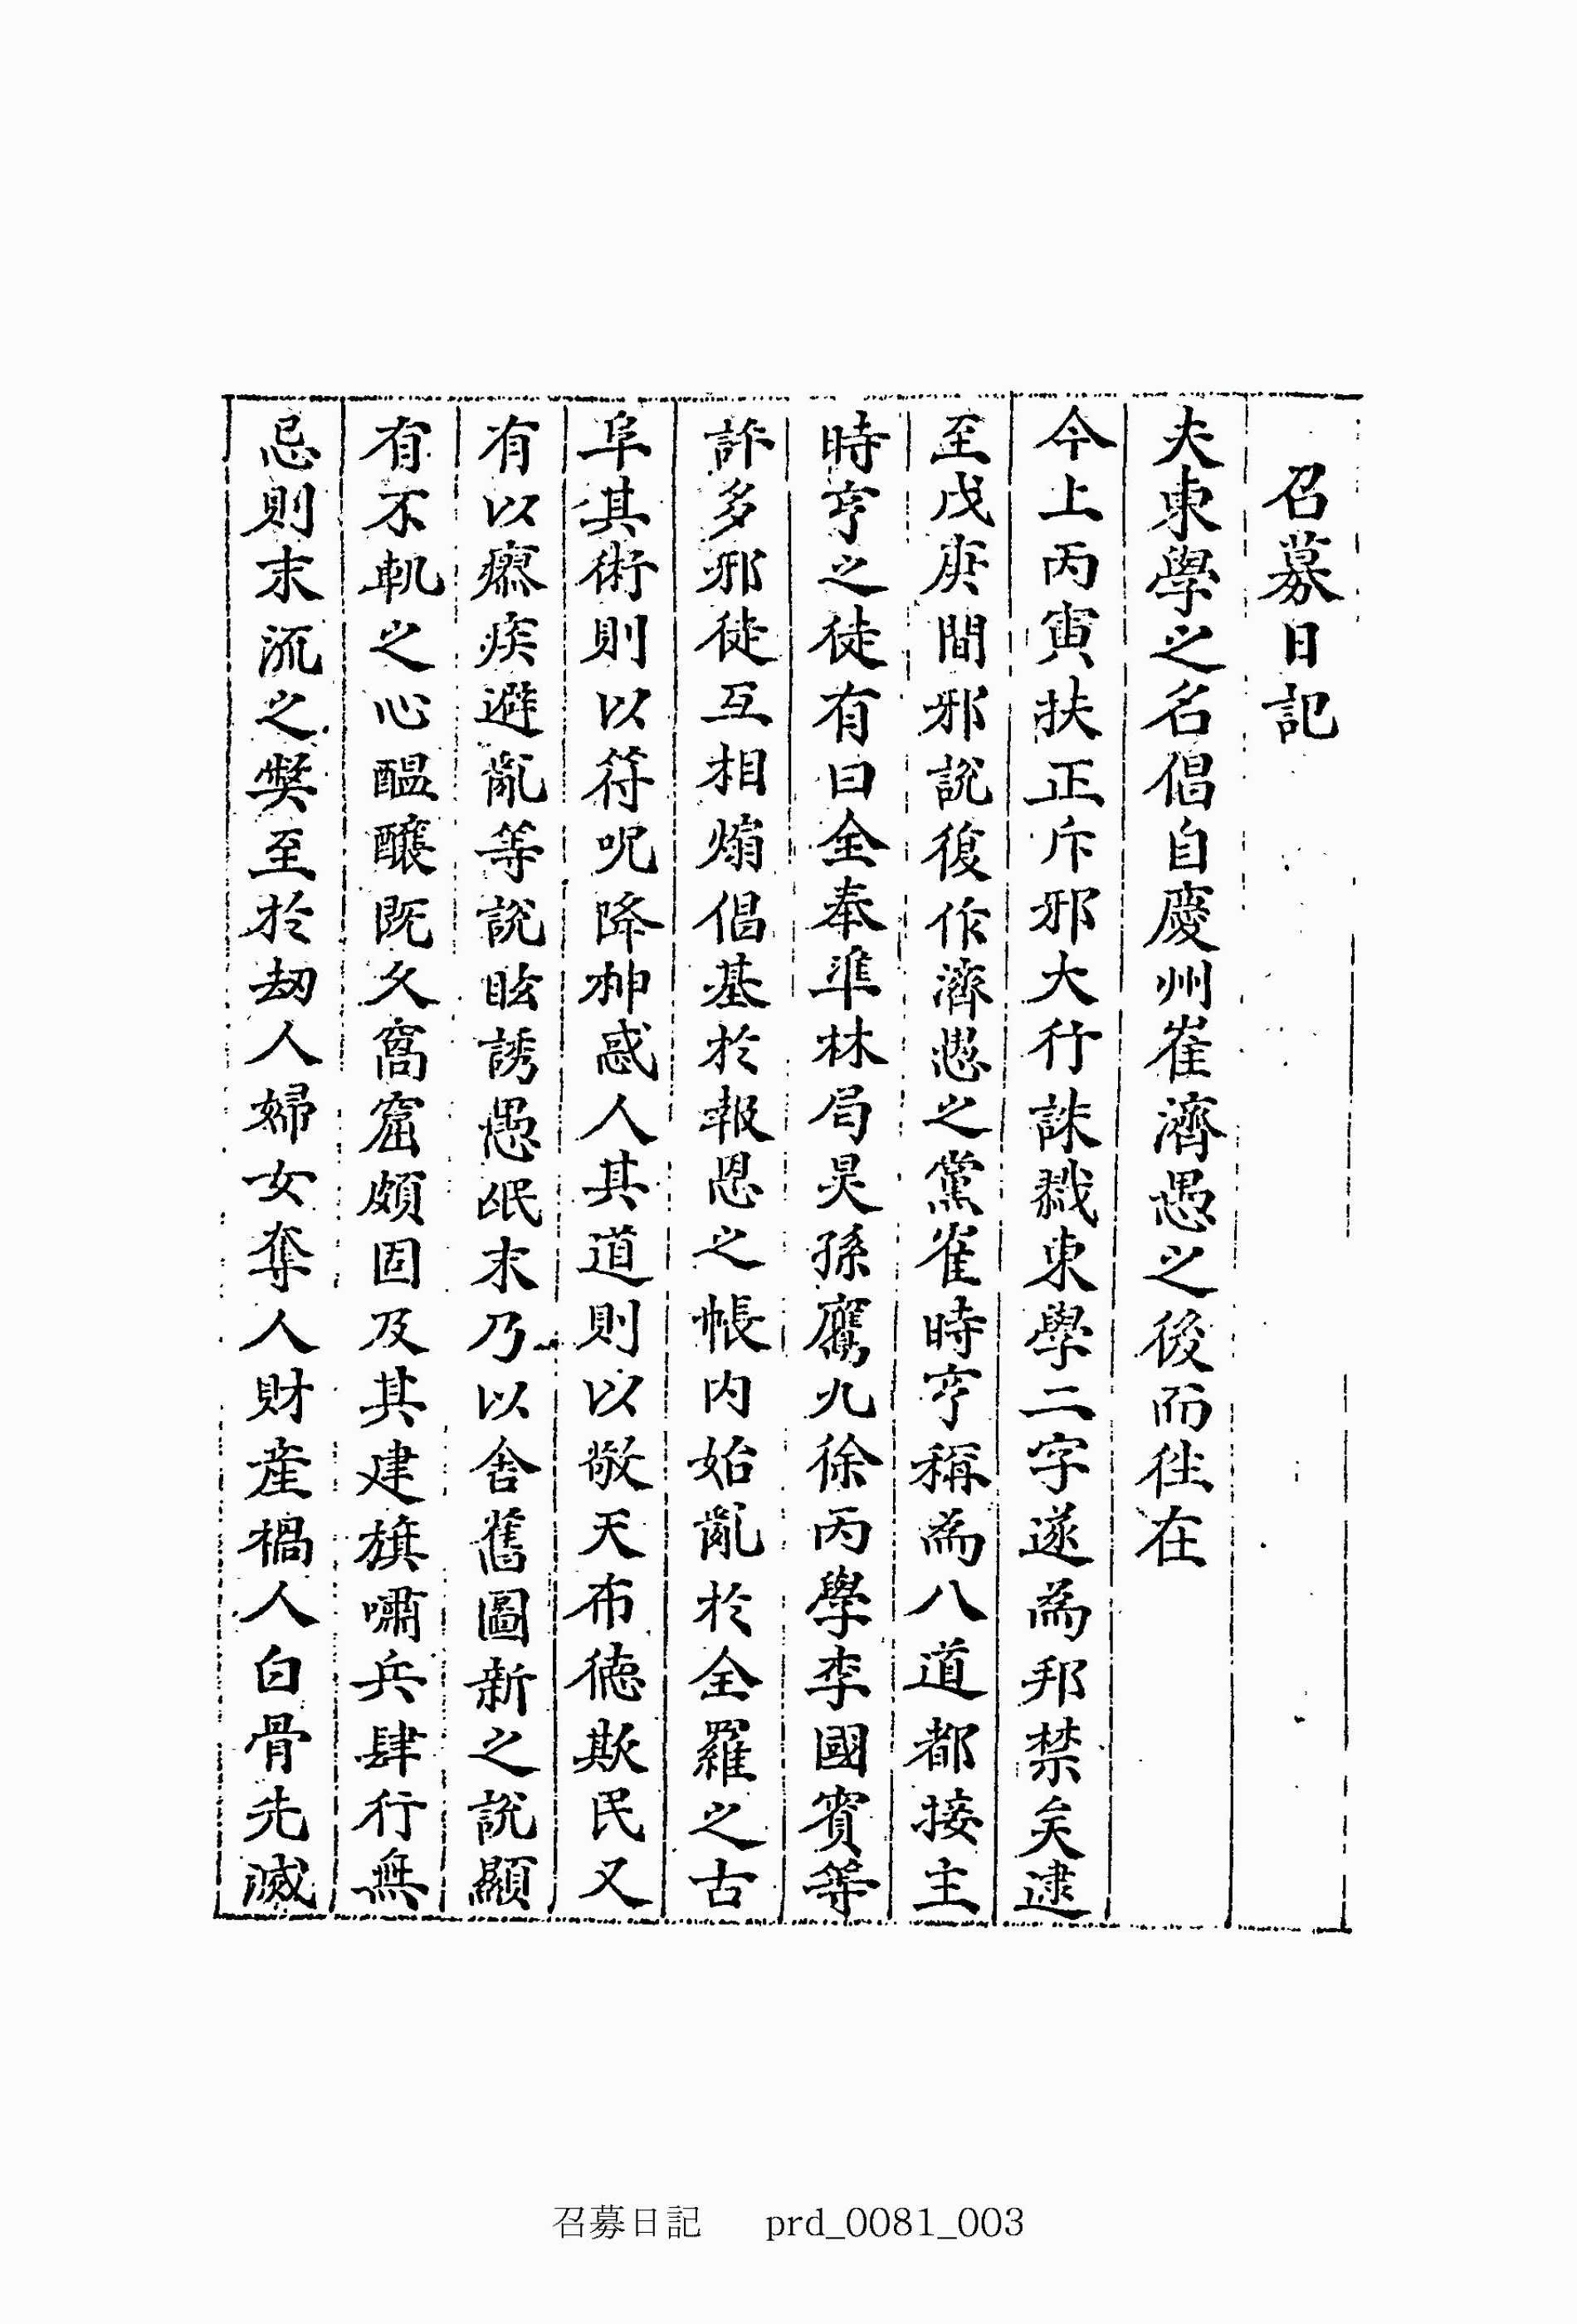 召募日記
夫東學之名倡自慶州崔濟愚之後而徃在
今上丙寅扶正斥邪大行誅戮東學二字遂為邦禁矣逮
至戊庚間邪說復作濟愚之黨崔時亨稱為八道都接主
時亨之徒有曰全奉準林局昊孫鷹九徐丙學李國賓等
許多邪徒互相煽倡基於報恩之帳内始亂於全羅之古
阜其術則以符呪降神惑人其道則以敬天布德欺民又
有以療疾避亂等說眩誘愚氓末乃以舎舊圖新之說顯
有不軌之心醞釀既久窩窟頗固及其建旗嘯兵肆行無
忌則末流之獘至於刼人婦女奪人財産禍人白骨先滅
召募日記 prd_0081_003